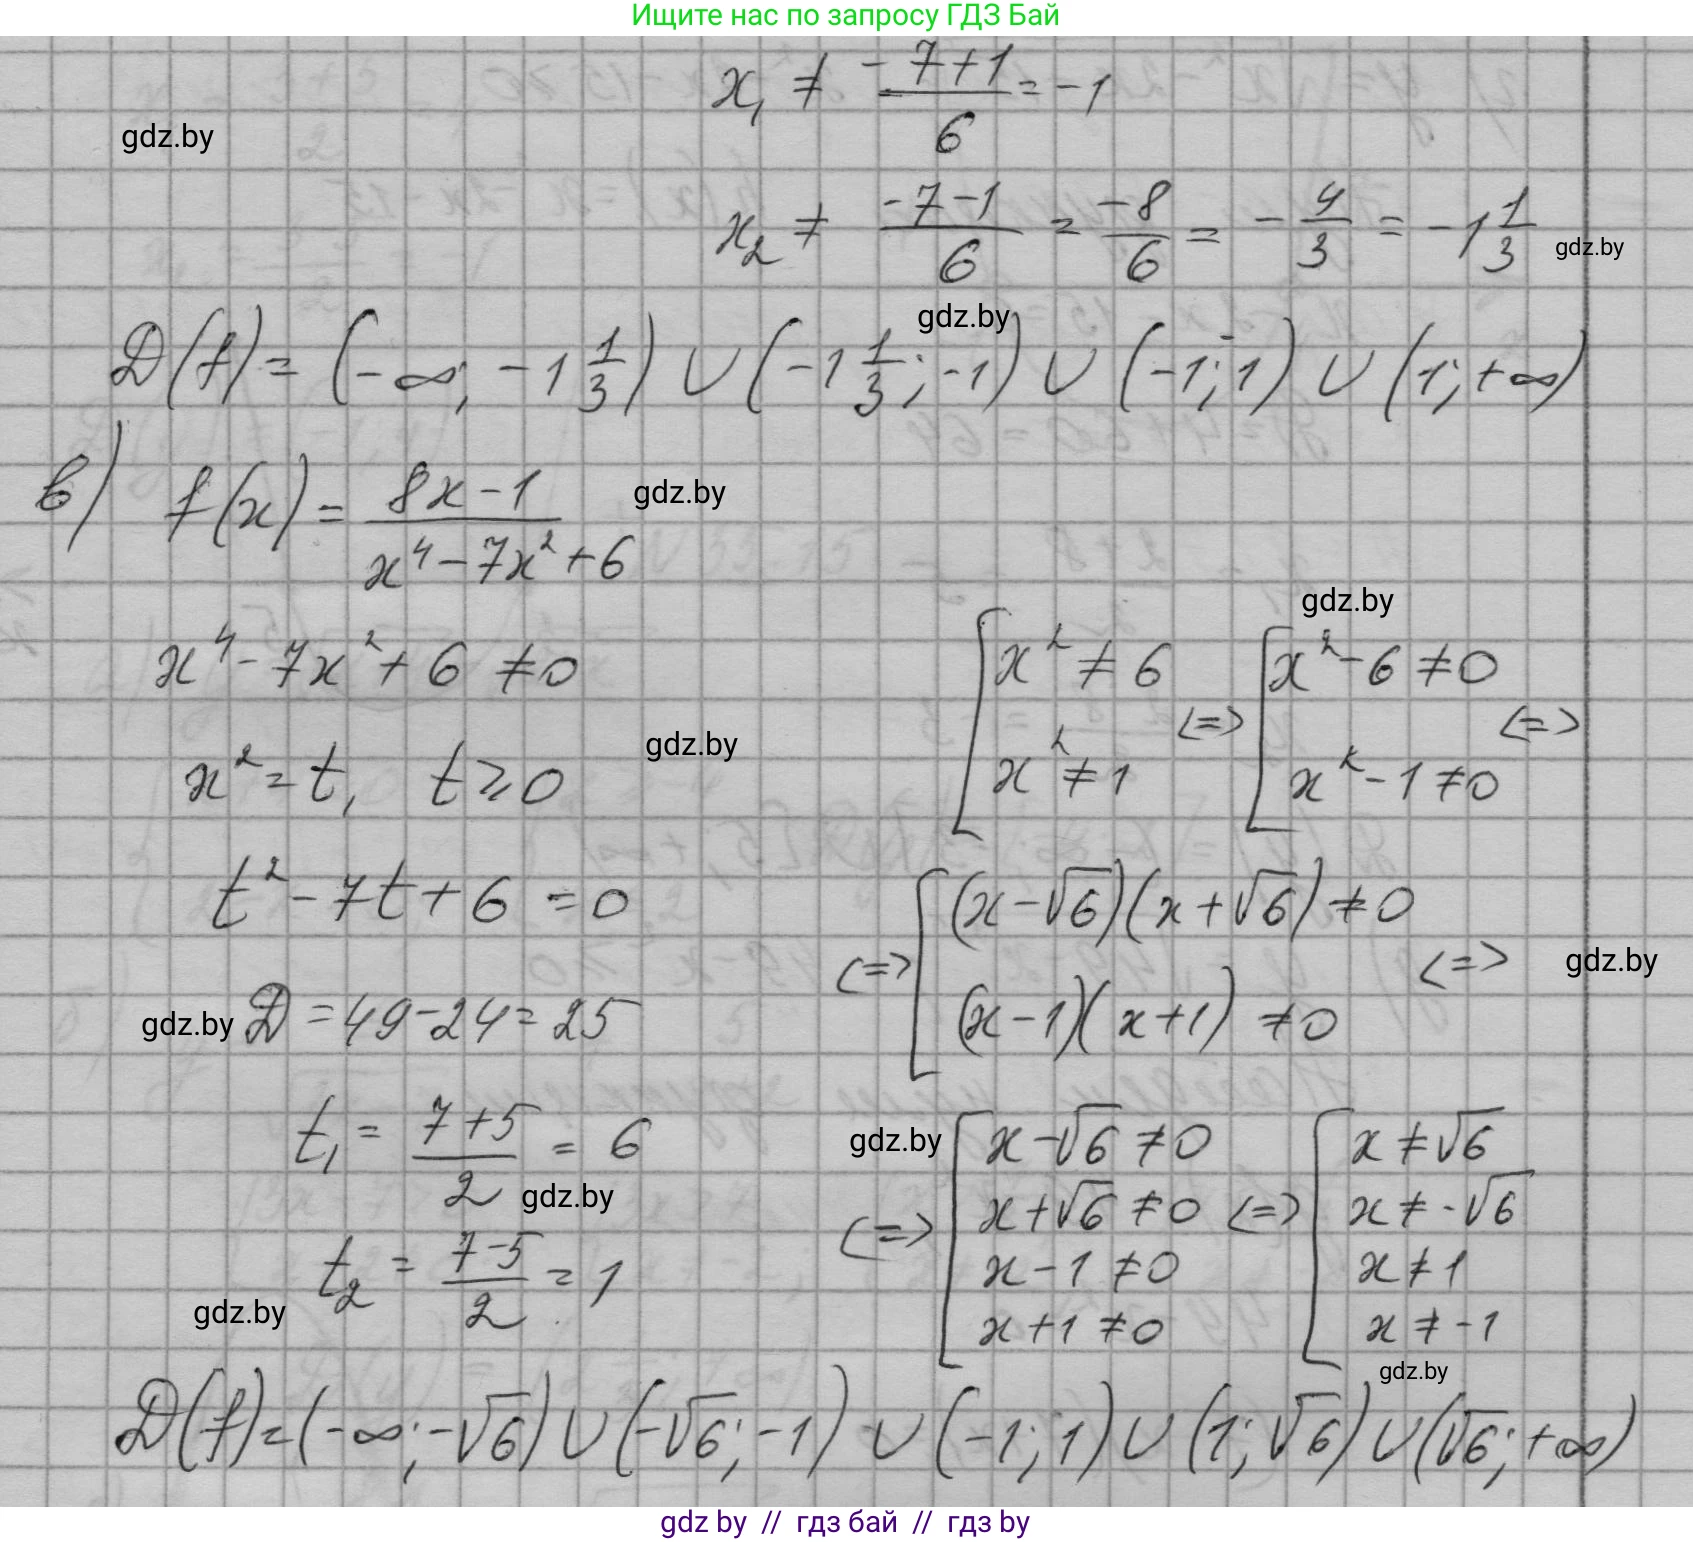 Ищите нас по запросу ГДЗ Бай
x₁ ≠ (-7+1)/6 = -1
gdz.by
x₂ ≠ (-7-1)/6 = -8/6 = -4/3 = -1 1/3
gdz.by
gdz.by
D(f) = (-∞; -1 1/3) ∪ (-1 1/3; -1) ∪ (-1; 1) ∪ (1; +∞)
в) f(x) = (8x-1)/(x⁴-7x²+6)
gdz.by
x⁴-7x²+6 ≠ 0
x² = t, t ≥ 0
gdz.by
t²-7t+6 = 0
gdz.by
D = 49-24 = 25
t₁ = (7+5)/2 = 6
gdz.by
t₂ = (7-5)/2 = 1
gdz.by
gdz.by
[ x² ≠ 6 <=> [ x²-6 ≠ 0 <=>
x² ≠ 1 x²-1 ≠ 0
<=> [ (x-√6)(x+√6) ≠ 0 <=>
(x-1)(x+1) ≠ 0
gdz.by
gdz.by
[ x-√6 ≠ 0 [ x ≠ √6
<=> x+√6 ≠ 0 <=> x ≠ -√6
x-1 ≠ 0 x ≠ 1
x+1 ≠ 0 x ≠ -1
gdz.by
D(f) = (-∞; -√6) ∪ (-√6; -1) ∪ (-1; 1) ∪ (1; √6) ∪ (√6; +∞)
gdz by // гдз бай // гдз by